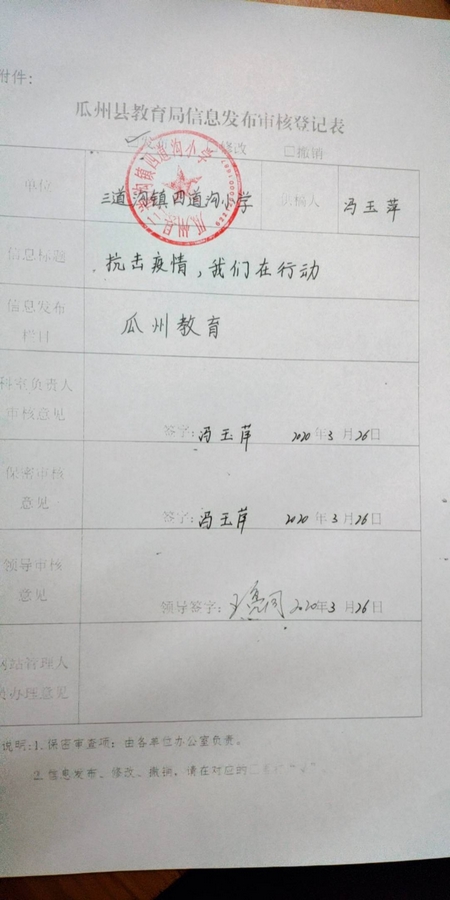 附件：
瓜州县教育局信息发布审核登记表
修改 □撤销
单位 三道沟镇四道沟小学 供稿人 冯玉萍
信息标题 抗击疫情，我们在行动
信息发布
栏目
瓜州教育
科室负责人
审核意见
签字：冯玉萍 2020年3月26日
保密审核
意见
签字：冯玉萍 2020年3月26日
领导审核
意见
领导签字： 2020年3月26日
网站管理人
员办理意见
说明：1.保密审查项：由各单位办公室负责。
2.信息发布、修改、撤销，请在对应的